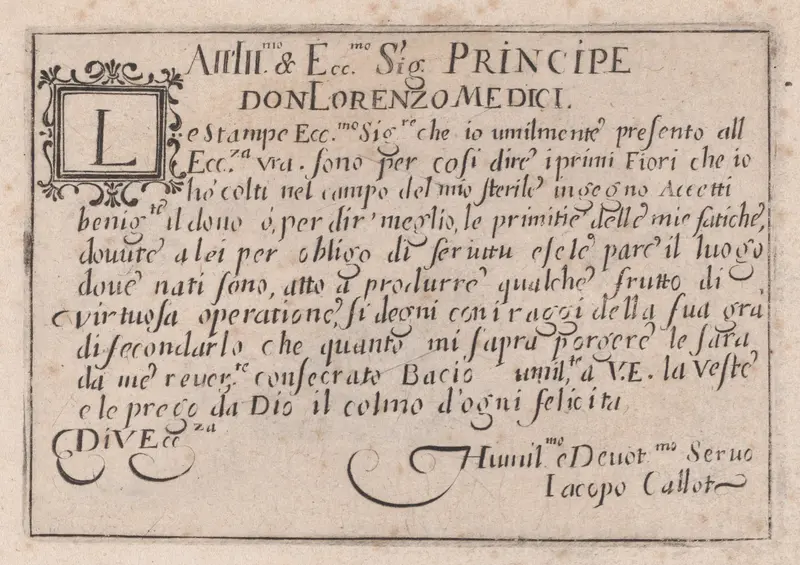 All'Ill.mo & Ecc.mo Sig.r PRINCIPE
DON LORENZO MEDICI.
Le Stampe Ecc.mo Sig.re che io umilmente presento all
Ecc.za vra. sono per cosi dire i primi Fiori che io
hò colti nel campo del mio sterile ingegno Accetti
benig.te il dono ò, per dir' meglio, le primitie delle mie fatiche,
dovute a lei per obligo di servitu e se le pare il luogo
dove nati sono, atto a produrre qualche frutto di
virtuosa operatione, si degni con i raggi della sua gra
di fecondarlo che quanto mi saprà porgere le sara
da me rever.te consecrato Bacio umil.te a V.E. la veste
e le prego da Dio il colmo d'ogni felicita
Di V Ecc.za
Humil.mo e Devot.mo Servo
Iacopo Callot